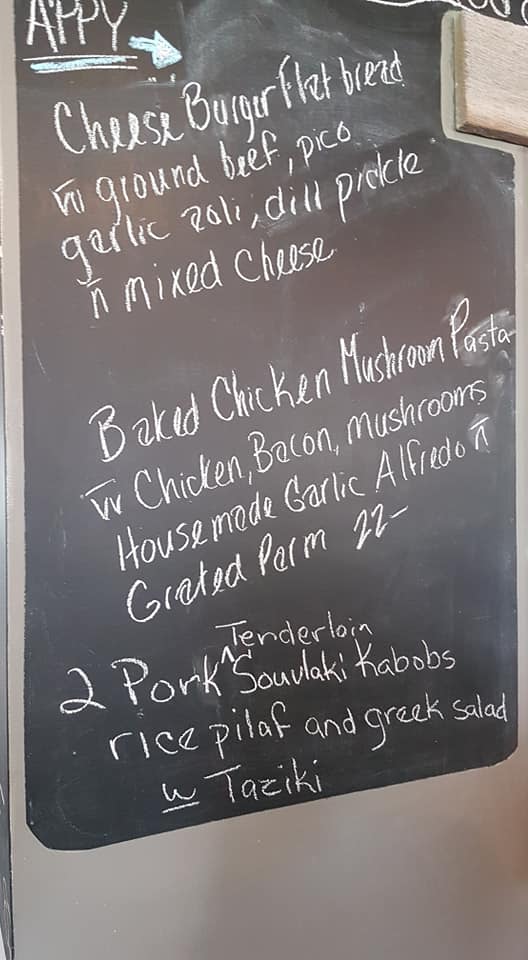 APPY
Cheese Burger Flat bread
w ground beef, pico
garlic aoli, dill pickle
n mixed cheese
Baked Chicken Mushroom Pasta
w Chicken, Bacon, mushrooms
Housemade Garlic Alfredo n
Grated Parm 22-
Tenderloin
2 Pork ^ Souvlaki Kabobs
rice pilaf and greek salad
w Taziki